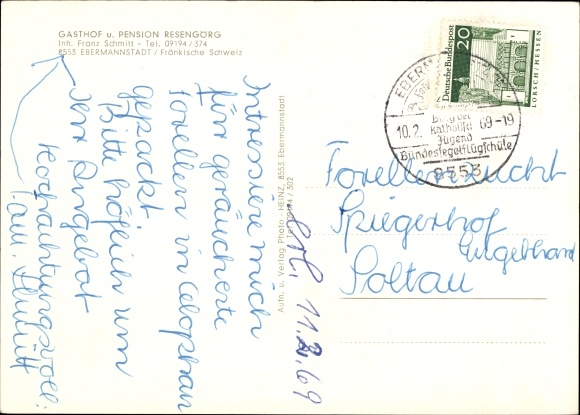 GASTHOF u. PENSION RESENGÖRG
Inh. Franz Schmitt - Tel. 09194/374
8553 EBERMANNSTADT / Fränkische Schweiz
Intressiere mich
für geräucherte
Forellen in Celophan
gepackt.
Bitte höflich um
Ihr Angebot
Hochachtungsvoll:
Aufn. u. Verlag Photo-HEINZ, 8553 Ebermannstadt
Tel. 09194/302
11.2.69
Deutsche Bundespost
20
LORSCH/HESSEN
10.2. 69-19
Jugend
Bundessegelflugschule
8553
Forellenzucht
Spiegerhof
Engelhard
Soltau